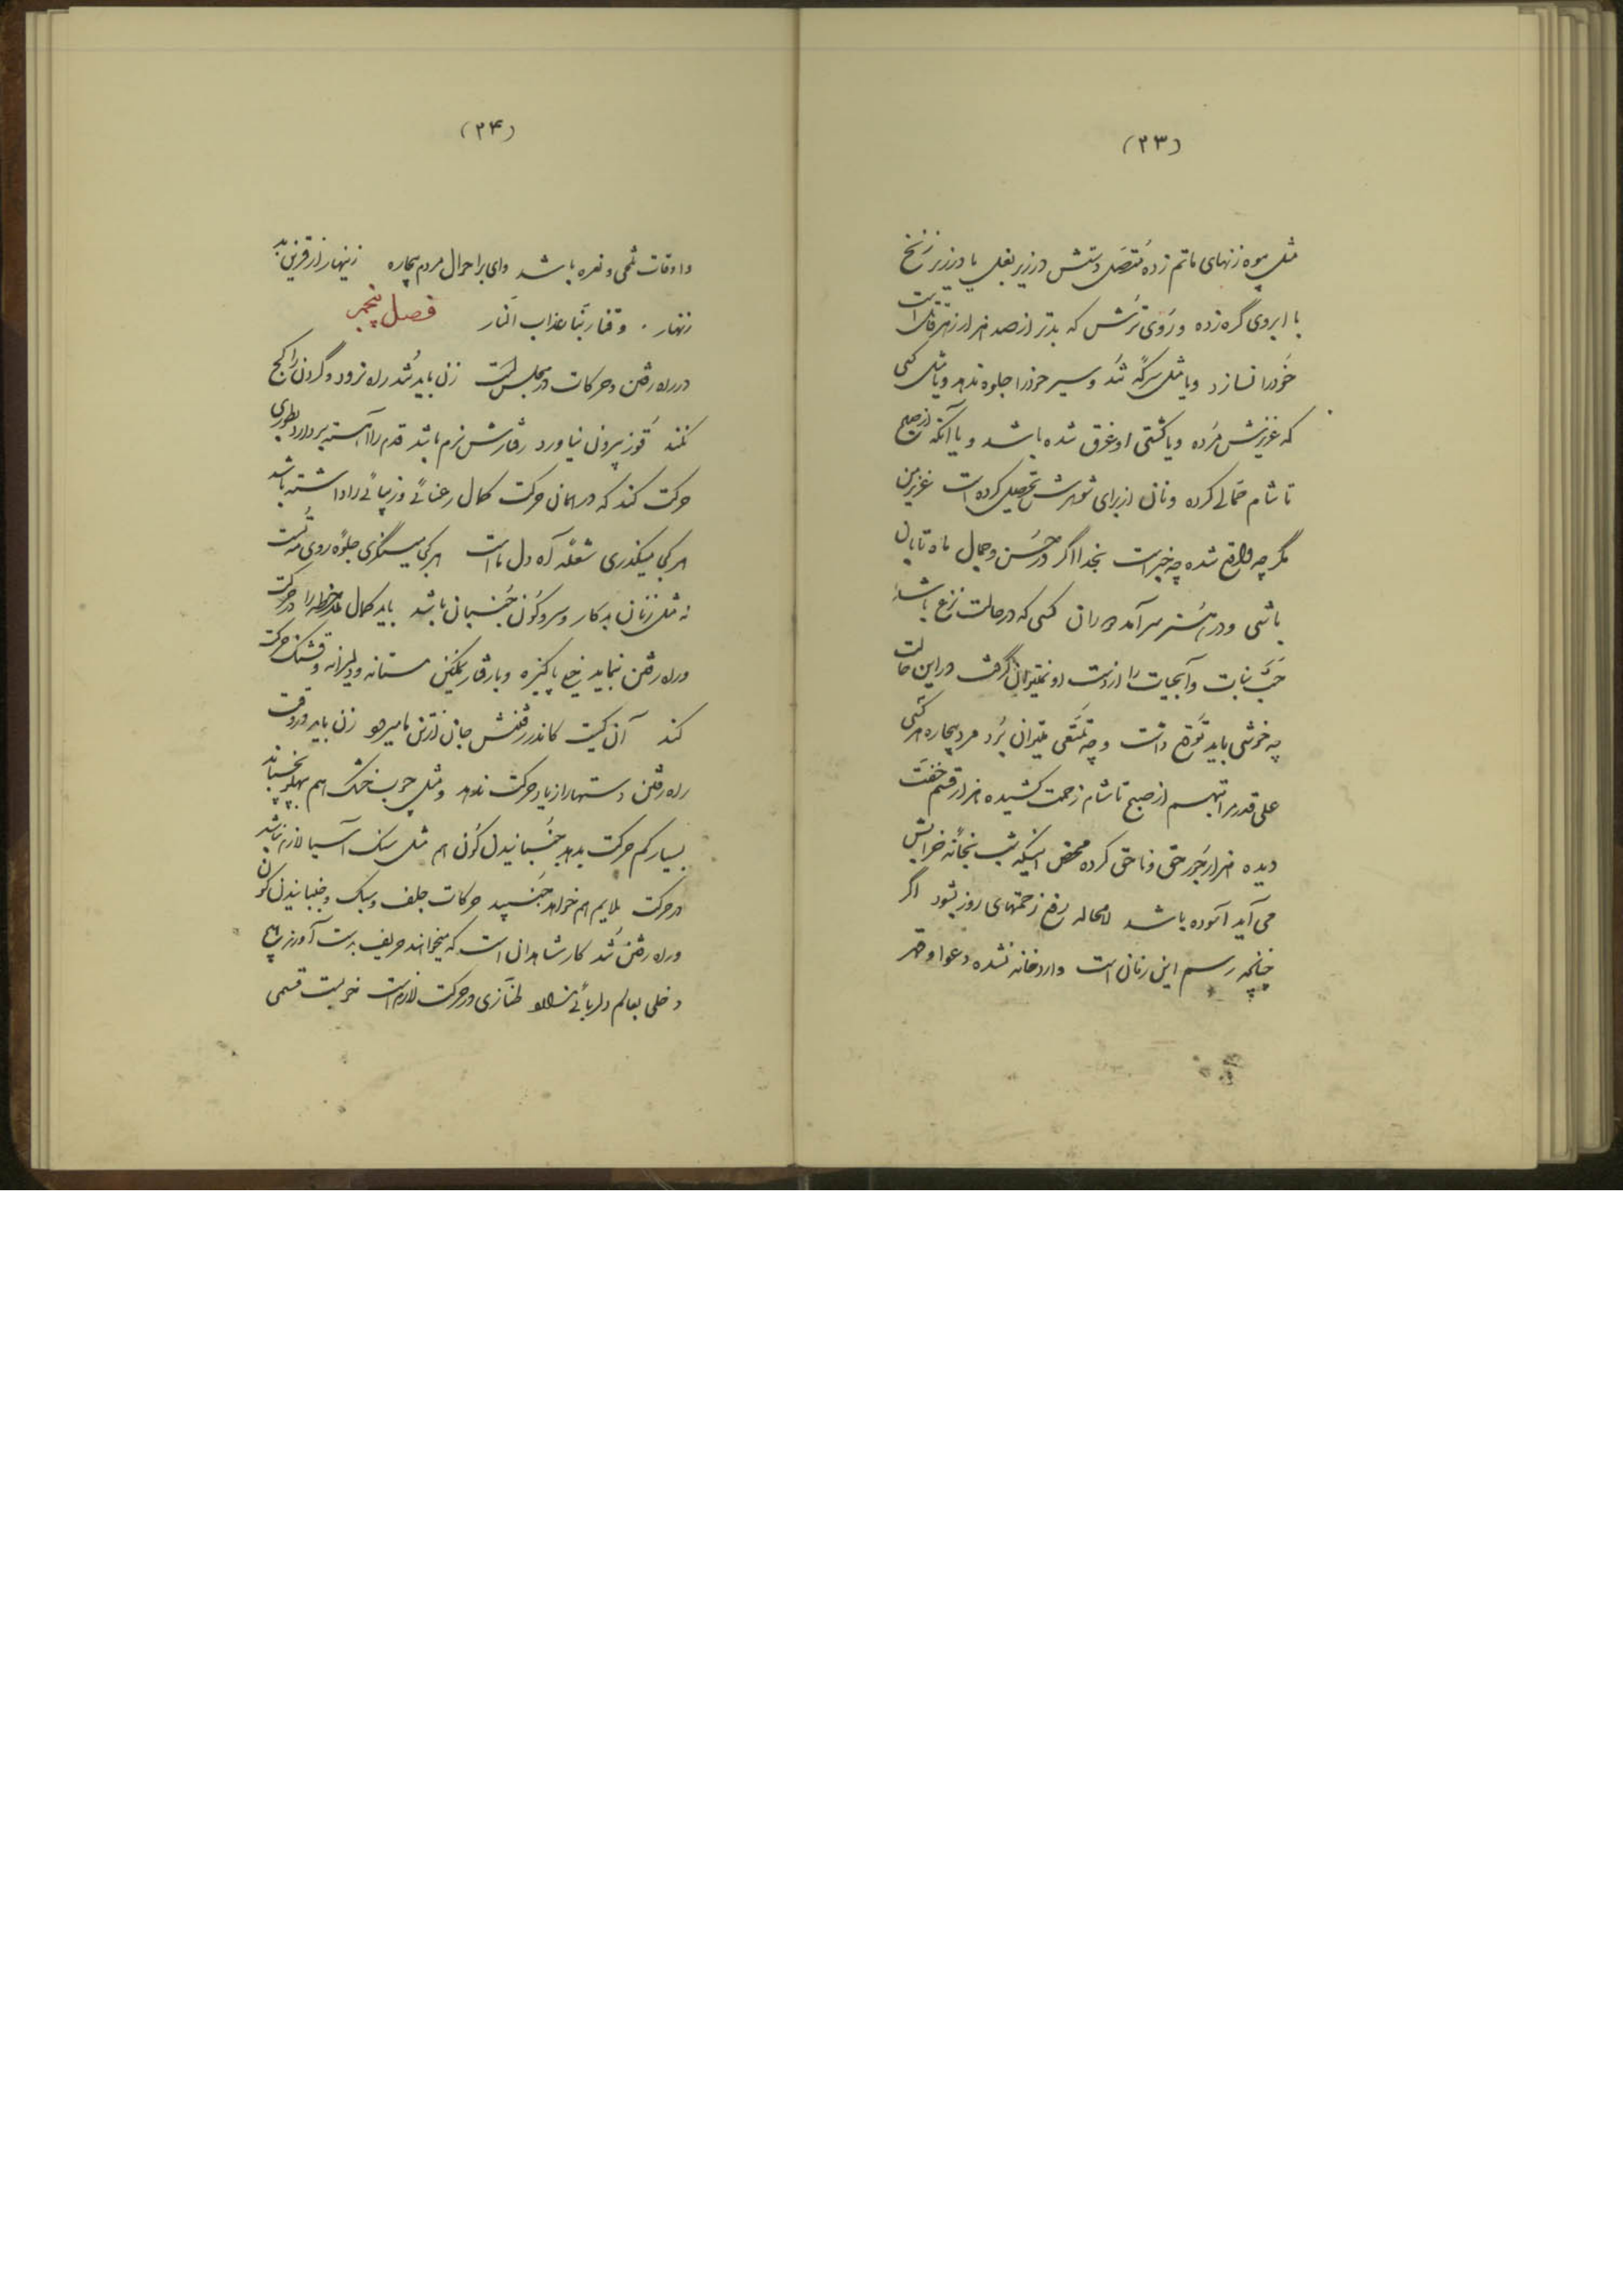 (۲۳)
مثل بیوه زنهای ماتم زده مُتصَل دستش در زیر بغل یا در زیر زنخ
با ابروی گره زده و رَوی تُرش که بدتر از صد هزار زهر قاتل است
خود را نسازد و یا مثل سرکه تُند و سیر خود را جلوه ندهد و یا مثل کسی
که عزیزش مُرده و یا کشتی او غرق شده باشد و یا آنکه از صبح
تا شام حمّالی کرده و نان از برای شوهرش تحصیل کرده است عزیز من
مگر چه واقع شده چه خبر است بخدا اگر در حُسن و جمال ماه تابان
باشی و در هُنر سرآمد دوران کسی که در حالت نزع باشد
حَبّ نبات و آبحیات را از دست او نمیتوان گرفت در این حالت
چه خوشی باید توَقع داشت و چه تَمتّعی میتوان بُرد مرد بیچاره هر کسی
علی قدر مراتبهم از صبح تا شام زحمت کشیده هزار قسم خفّت
دیده هزار جَور حق و ناحق کرده محض اینکه شب بخانهٔ خرابش
می آید آسوده باشد لامحاله رفع زحمتهای روز بشود اگر
چنانچه رسم این زنان است وارد خانه نشده دعوا و قهر
(۲۴)
و اوقات تلخی و نعره باشد وای بر احوال مردم بیچاره زینهار از قرین بد
زنهار . و قنا ربّنا عذاب النّار فصل پنجم
در راه رفتن و حرکات در مجلس است زن باید تُند راه نرود و گردن را کج
نکند قوز بیرون نیاورد رفتارش نرم باشد قدم را آهسته بردارد بطوری
حرکت کند که در همان حرکت کمال رعنائی و زیبائی را داشته باشد
هر کجا میگذری شعلهٔ آه دل ماست هر کجا مینگری جلوهٔ روی مه تُست
نه مثل زنان بدکار و سر و کون جُنبان باشد باید کمال ملاحظه را در حرکت
و راه رفتن نماید خیلی پاکیزه و با رفتار نمکین مستانه و دلیرانه و قشنگ حرکت
کند آن کیست کاندر رفتنش جان از تن ما میرود زن باید در وقت
راه رفتن دستها را زیاد حرکت ندهد و مثل چوب خشک هم بپهلو نچسباند
بسیار کم حرکت بدهد جُنبانیدن کون هم مثل سنگ آسیا لازم نباشد
در حرکت ملایم هم خواهد جُنبید حرکات جلف و سبک و جنبانیدن کون
و راه رفتن تُند کار شاهدان است که میخواهند حریف بدست آورند هیچ
دخلی بعالم دلربائی ندارد طنّازی در حرکت لازم است خوبست قسمی